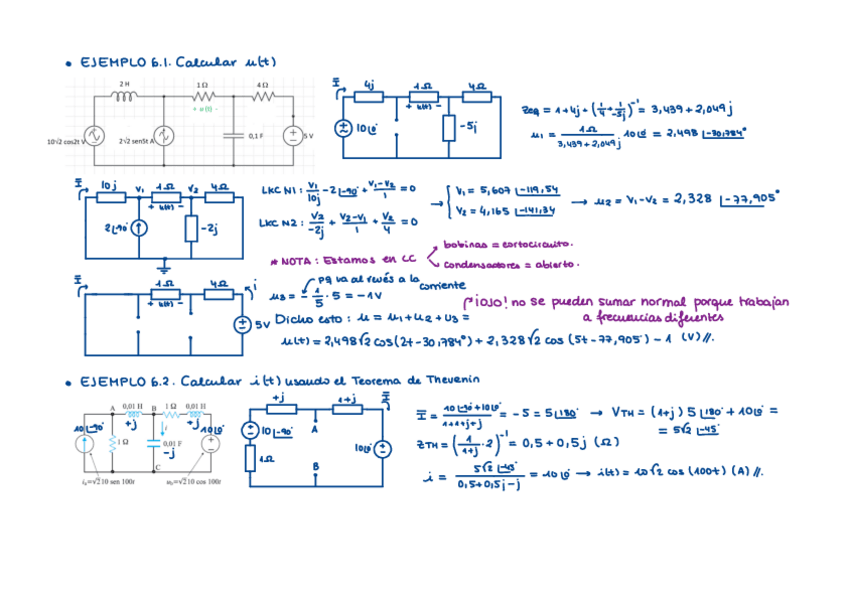 • EJEMPLO 6.1. Calcular u(t)
2 H
1 Ω
4 Ω
+ u(t) -
10√2 cos2t V
2√2 sen5t A
0,1 F
5 V
I
4j
1Ω
4Ω
+ u(t) -
10∠0°
-5j
Zeq = 1+4j+(1/4+1/-5j)⁻¹ = 3,439+2,049j
u1 = 1Ω/3,439+2,049j 10∠0° = 2,498 ∠-30,784°
I
10j
V1
1Ω
V2
4Ω
+ u(t) -
2∠-90°
-2j
LKC N1: V1/10j - 2∠-90° + V1-V2/1 = 0
LKC N2: V2/-2j + V2-V1/1 + V2/4 = 0
→ { V1 = 5,607 ∠-119,54
V2 = 4,165 ∠-141,34
→ u2 = V1-V2 = 2,328 ∠-77,905°
* NOTA: Estamos en CC
bobinas = cortocircuito.
condensadores = abierto.
I
1Ω
4Ω
i
+ u(t) -
5V
pq va al revés a la corriente
u3 = -1/5 · 5 = -1V
Dicho esto: u = u1+u2+u3 =
¡OJO! no se pueden sumar normal porque trabajan
a frecuencias diferentes
u(t) = 2,498√2 cos(2t-30,784°) + 2,328√2 cos (5t-77,905°) - 1 (V)//.
• EJEMPLO 6.2. Calcular i(t) usando el Teorema de Thevenin
A 0,01 H B 1 Ω 0,01 H
10∠-90°
+j
+j
10∠0°
1 Ω
i
0,01 F
-j
C
is=√2 10 sen 100t
us=√2 10 cos 100t
+j
1+j
I
10∠-90°
A
1Ω
B
10∠0°
I = 10∠-90°+10∠0°/1+1+j+j = -5 = 5∠180° → VTH = (1+j) 5∠180° + 10∠0° =
= 5√2 ∠-45°
ZTH = (1/1+j · 2)⁻¹ = 0,5+0,5j (Ω)
i = 5√2 ∠-45°/0,5+0,5j-j = 10∠0° → i(t) = 10√2 cos (100t) (A)//.